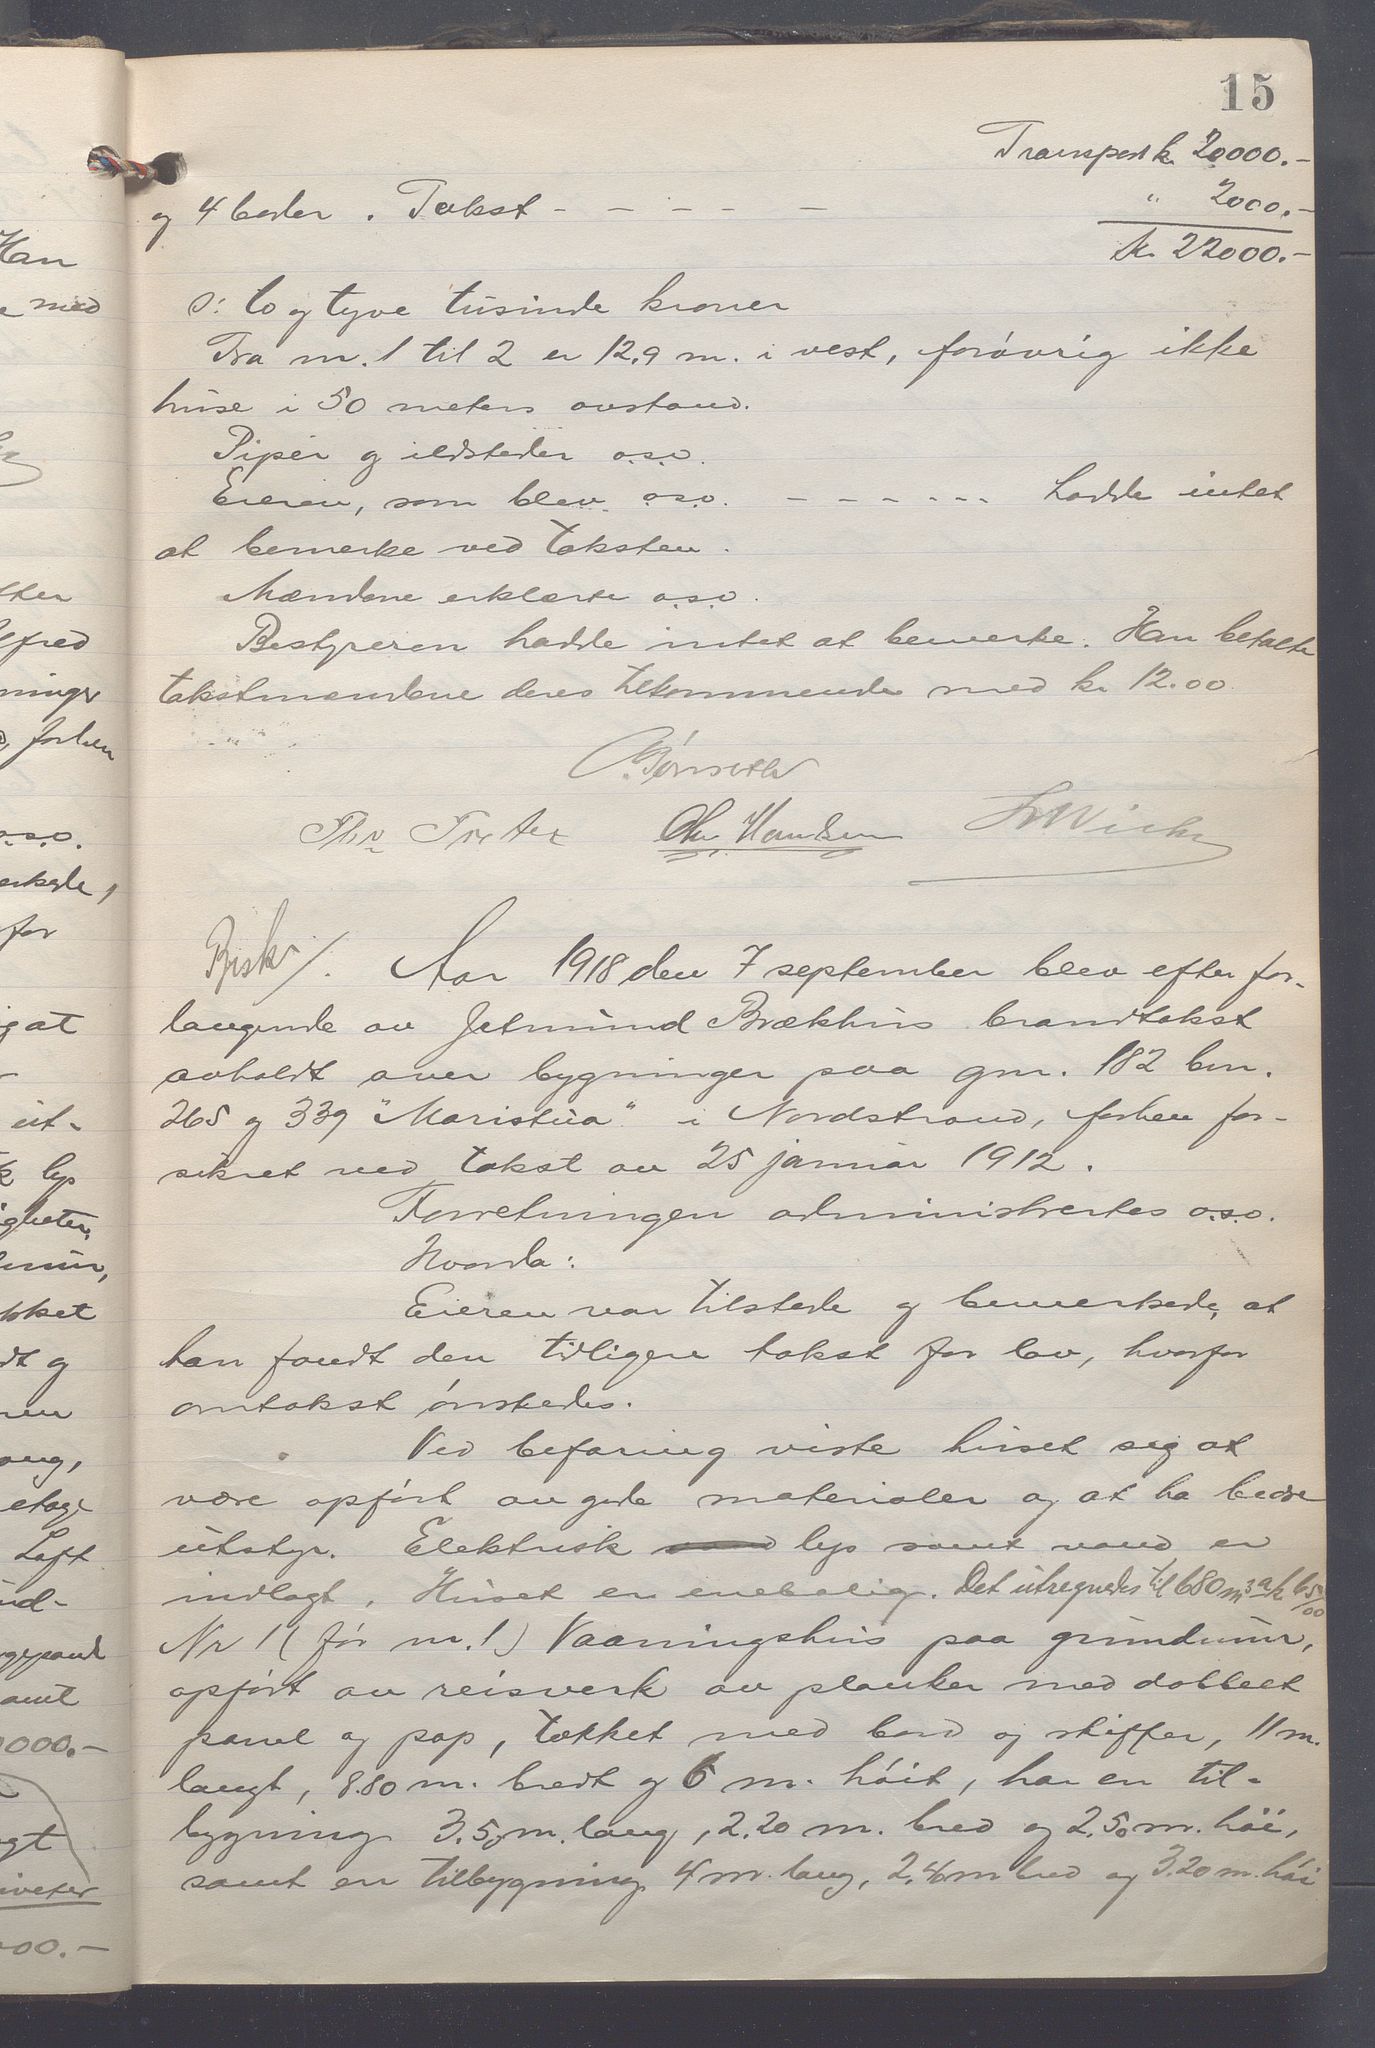 15
Transport k. 20000.-
og 4 boder. Takst - - - - - " 2000.-
kr. 22000.-
o: to og tyve tusinde kroner
Fra nr. 1 til 2 er 12.9 m. i vest, forøvrig ikke
huse i 50 meters avstand.
Piper og ildsteder o.s.v.
Eieren, som blev o.s.v. - - - - - - - hadde intet
at bemerke ved taksten.
Mændene erklærte o.s.v.
Bestyreren hadde intet at bemerke. Han betalte
takstmændene deres tilkommende med kr 12.00
Chr Hansen
Aar 1918 den 7 september blev efter for-
langende av Jetmund Brækhus brandtakst
avholdt over bygninger paa gnr. 182 bnr.
265 og 339 "Maristua" i Nordstrand, forhen for-
sikret ved takst av 25 januar 1912.
Forretningen administrertes o.s.v.
Hvorda:
Eieren var tilstede og bemerkede, at
han fandt den tidligere takst for lav, hvorfor
omtakst ønskedes.
Ved befaring viste huset seg at
være opført av gode materialer og at ha bedre
utstyr. Elektrisk lys samt vand er
indlagt. Huset er enebolig. Det utregnedes til 680 m³ a k
Nr 1 (før nr. 1) Vaaningshus paa grundmur,
opført av reisverk av planker med dobbelt
panel og pap, tækket med bord og skiffer, 11 m.
langt, 8.80 m. bredt og 6 m. høit, har en til-
bygning 3.50 m. lang, 2.20 m. bred og 2.50 m. høi,
samt en tilbygning 4 m. lang, 2.40 m bred og 3.20 m. høi
Han
med
forhen
o.s.v.
for
at
ut-
lys
og
etage
Loft
000.-
00.-